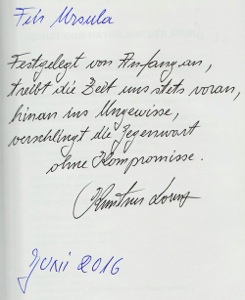 Für Ursula
Festgelegt von Anfang an,
treibt die Zeit uns stets voran,
hinan ins Ungewisse,
verschlingt die Gegenwart
ohne Kompromisse.
Juni 2016